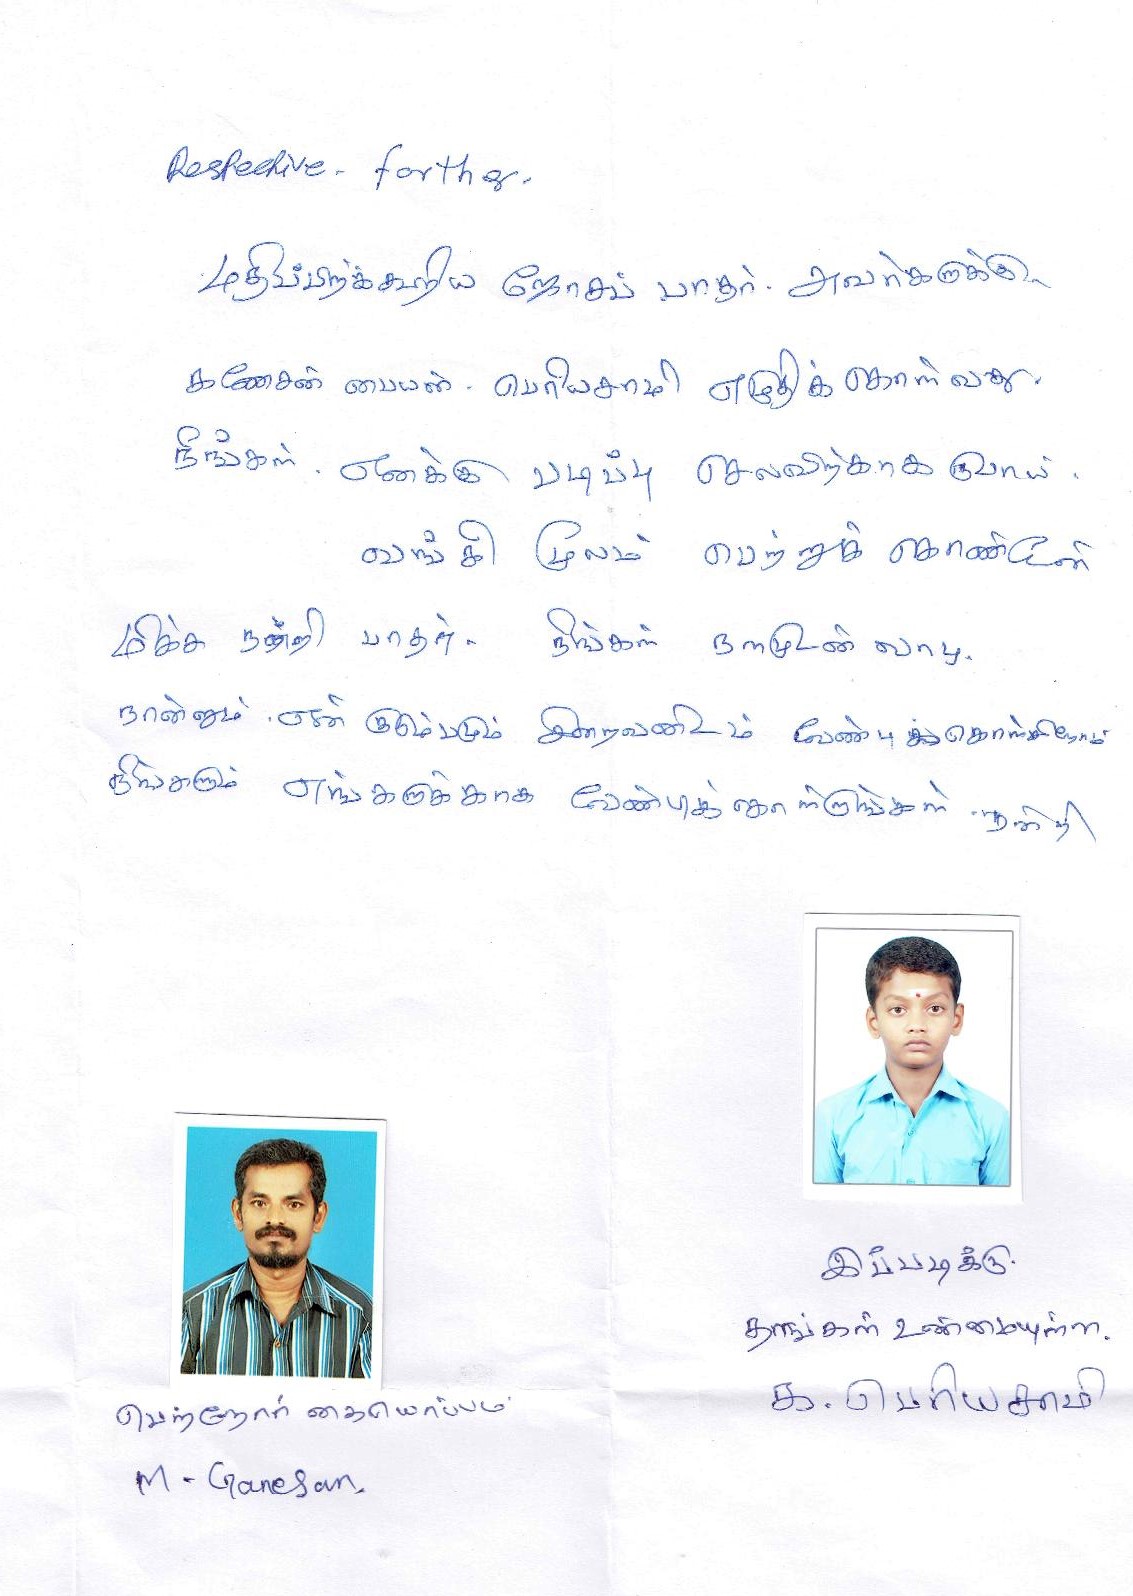 Respective. forther.
மதிப்பிற்க்கூறிய ஜோசப் பாதர். அவர்களுக்கு
கணேசன் பையன். பெரியசாமி எழுதிக் கொள்வது.
நீங்கள். எனக்கு படிப்பு செலவிற்காக ரூபாய்.
வங்கி மூலம் பெற்றுக் கொண்டேன்
மிக்க நன்றி பாதர். நீங்கள் நலமுடன் வாழ.
நான்னும். என் குடும்பமும் இறைவனிடம் வேண்டிக்கொள்கிறோம்
நீங்களும் எங்களுக்காக வேண்டிக்கொள்ளுங்கள். நன்றி
இப்படிக்கு.
தாங்கள் உண்மையுள்ள.
க. பெரியசாமி
பெற்றோர் கையொப்பம்
M - Ganesan.